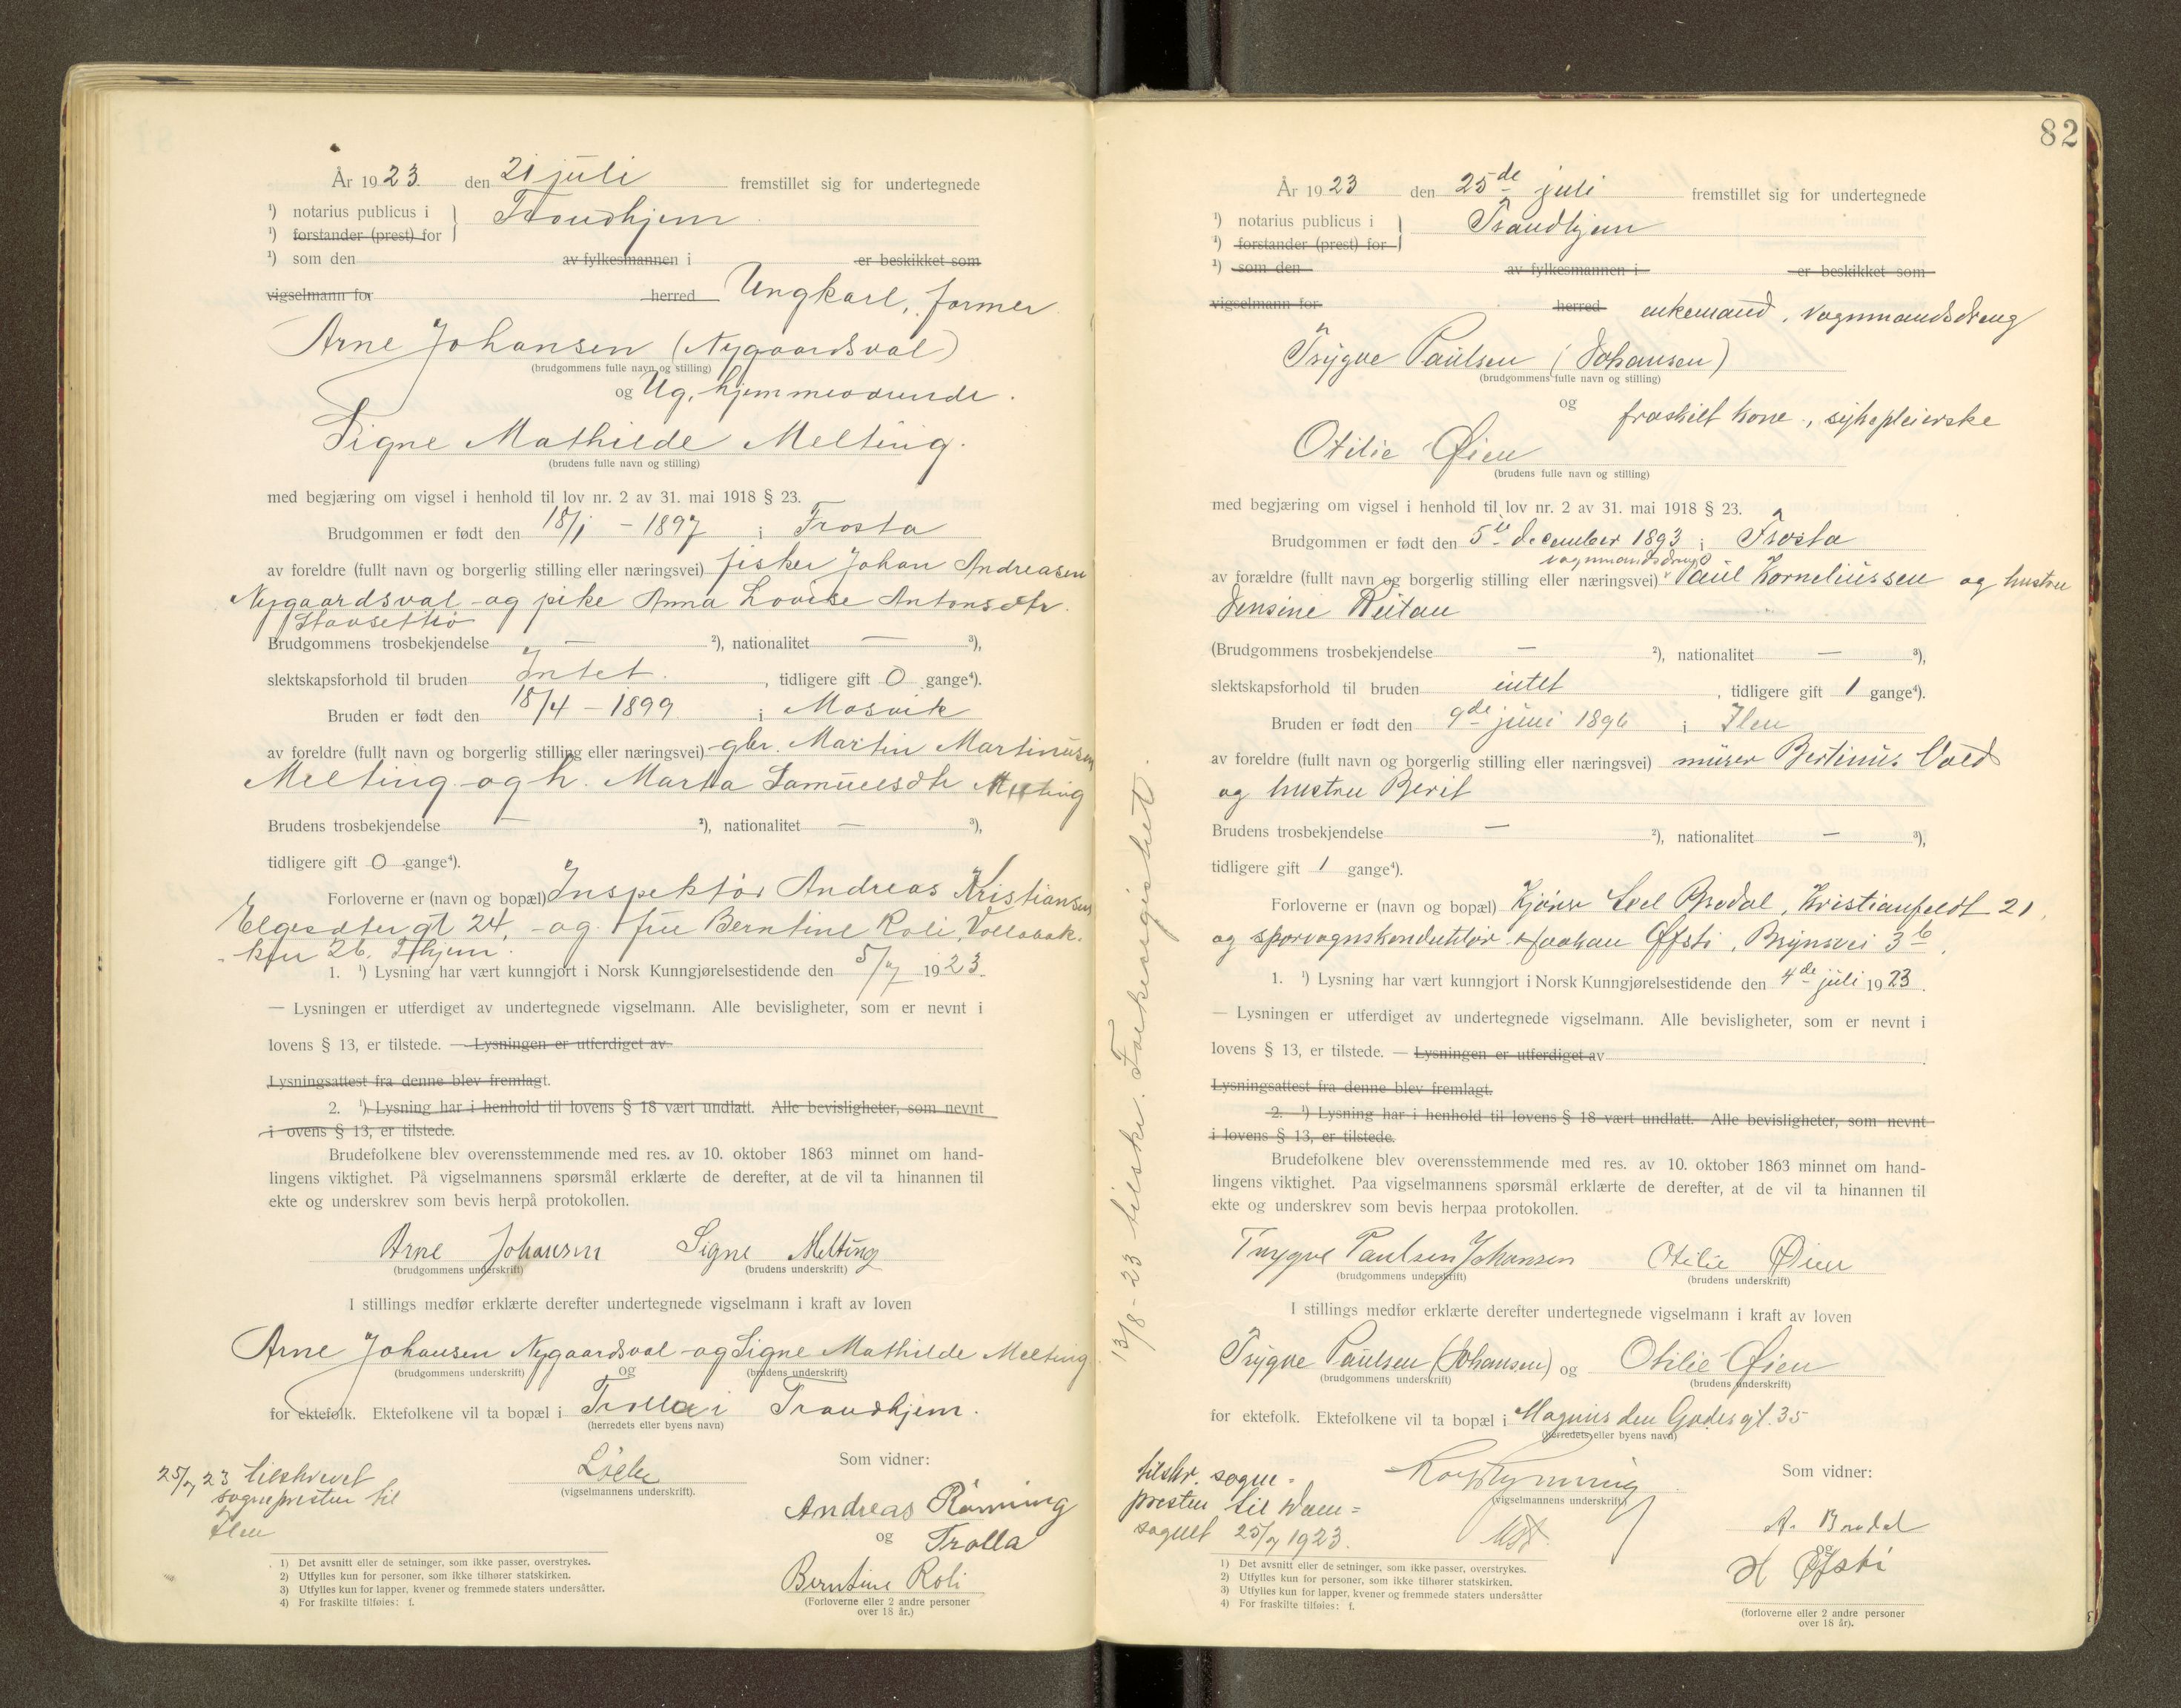 År 1923. den 21 juli fremstillet sig for undertegnede
¹) notarius publicus i } Trondhjem
¹) forstander (prest) for
¹) som den av fylkesmannen i er beskikket som
vigselmann for herred Ungkarl, former
Arne Johansen (Nygaardsval)
(brudgommens fulle navn og stilling)
og Ug, hjemmeværende.
Signe Mathilde Melting.
(brudens fulle navn og stilling)
med begjæring om vigsel i henhold til lov nr. 2 av 31. mai 1918 § 23.
Brudgommen er født den 18/1 - 1897 i Frosta
av foreldre (fullt navn og borgerlig stilling eller næringsvei) fisker Johan Andreasen
Nygaardsval og pike Anna Lovise Antonsdtr.
Brudgommens trosbekjendelse — ²), nationalitet — ³),
slektskapsforhold til bruden Intet. , tidligere gift 0 gange⁴).
Bruden er født den 18/4 - 1899 i Mosvik
av foreldre (fullt navn og borgerlig stilling eller næringsvei) gbr. Martin Martinusen
Melting og h. Marta Samuelsdtr Melting
Brudens trosbekjendelse — ²), nationalitet — ³),
tidligere gift 0 gange⁴).
Forloverne er (navn og bopæl) Inspektør Andreas Kristiansen
Elgesæter gt 24, og fru Berntine Roli, Vollabak-
ken 26, Thjem.
1. ¹) Lysning har vært kunngjort i Norsk Kunngjørelsestidende den 5/7 1923.
— Lysningen er utferdiget av undertegnede vigselmann. Alle bevisligheter, som er nevnt i
lovens § 13, er tilstede. — Lysningen er utferdiget av
Lysningsattest fra denne blev fremlagt.
2. ¹) Lysning har i henhold til lovens § 18 vært undlatt. Alle bevisligheter, som nevnt
i ovens § 13, er tilstede.
Brudefolkene blev overensstemmende med res. av 10. oktober 1863 minnet om hand-
lingens viktighet. På vigselmannens spørsmål erklærte de derefter, at de vil ta hinannen til
ekte og underskrev som bevis herpå protokollen.
Arne Johansen Signe Melting
(brudgommens underskrift) (brudens underskrift)
I stillings medfør erklærte derefter undertegnede vigselmann i kraft av loven
Arne Johansen Nygaardsval og Signe Mathilde Melting
(brudgommens underskrift) og (brudens underskrift)
for ektefolk. Ektefolkene vil ta bopæl i Trolla i Trondhjem.
(herredets eller byens navn)
25/7 23 tilskrevet
sognepresten til
Ilen
(vigselmannens underskrift).
Som vidner:
Andreas Rønning
og Trolla
Berntine Roli
(Forloverne eller 2 andre personer
over 18 år.)
1) Det avsnitt eller de setninger, som ikke passer, overstrykes.
2) Utfylles kun for personer, som ikke tilhører statskirken.
3) Utfylles kun for lapper, kvener og fremmede staters undersåtter.
4) For fraskilte tilføies: f.
82
År 1923 den 25de juli fremstillet sig for undertegnede
¹) notarius publicus i } Trondhjem
¹) forstander (prest) for
¹) som den av fylkesmannen i er beskikket som
vigselmann for herred enkemand, vognmandsdreng
Trygve Paulsen (Johansen)
(brudgommens fulle navn og stilling)
og fraskilt kone, sykepleierske
Otilie Øien
(brudens fulle navn og stilling)
med begjæring om vigsel i henhold til lov nr. 2 av 31. mai 1918 § 23.
Brudgommen er født den 5te december 1893 i Frosta
vognmandsdreng
av forældre (fullt navn og borgerlig stilling eller næringsvei) Paul Korneliussen og hustru
Jensine Reitan
(Brudgommens trosbekjendelse — ²), nationalitet — ³),
slektskapsforhold til bruden intet , tidligere gift 1 gange⁴).
Bruden er født den 9de juni 1896 i Ilen
av foreldre (fullt navn og borgerlig stilling eller næringsvei) murer Bertinus Vold
og hustru Berit
Brudens trosbekjendelse — ²), nationalitet — ³),
tidligere gift 1 gange⁴).
Forloverne er (navn og bopæl) Kjører Axel Brodal, Kristianfeldt 21,
og sporvognskonduktør Haakan Øfsti, Brynsvei 3b,
1. ¹) Lysning har vært kunngjort i Norsk Kunngjørelsestidende den 4de juli 1923.
— Lysningen er utferdiget av undertegnede vigselmann. Alle bevisligheter, som er nevnt i
lovens § 13, er tilstede. — Lysningen er utferdiget av
Lysningsattest fra denne blev fremlagt.
2. ¹) Lysning har i henhold til lovens § 18 vært undlatt. Alle bevisligheter, som nevnt
i lovens § 13, er tilstede.
Brudefolkene blev overensstemmende med res. av 10. oktober 1863 minnet om hand-
lingens viktighet. Paa vigselmannens spørsmål erklærte de derefter, at de vil ta hinannen til
ekte og underskrev som bevis herpaa protokollen.
Trygve Paulsen Johansen Otilie Øien
(brudgommens underskrift) (brudens underskrift)
I stillings medfør erklærte derefter undertegnede vigselmann i kraft av loven
Trygve Paulsen (Johansen) og Otilie Øien
(brudgommens underskrift) (brudens underskrift)
for ektefolk. Ektefolkene vil ta bopæl i Magnus den Godes gt. 35
(herredets eller byens navn)
tilskr. sogne-
presten til Dom-
sognet 25/7 1923.
(vigselmannens underskrift)
Som vidner:
A. Brodal
og
H Øfsti
(forloverne eller 2 andre personer
over 18 år).
1) Det avsnitt eller de setninger, som ikke passer, overstrykes.
2) Utfylles kun for personer, som ikke tilhører statskirken.
3) Utfylles kun for lapper, kvener og fremmede staters undersåtter
4) For fraskilte tilføies: f.
13/8-23 tilskr. Folkeregistret.